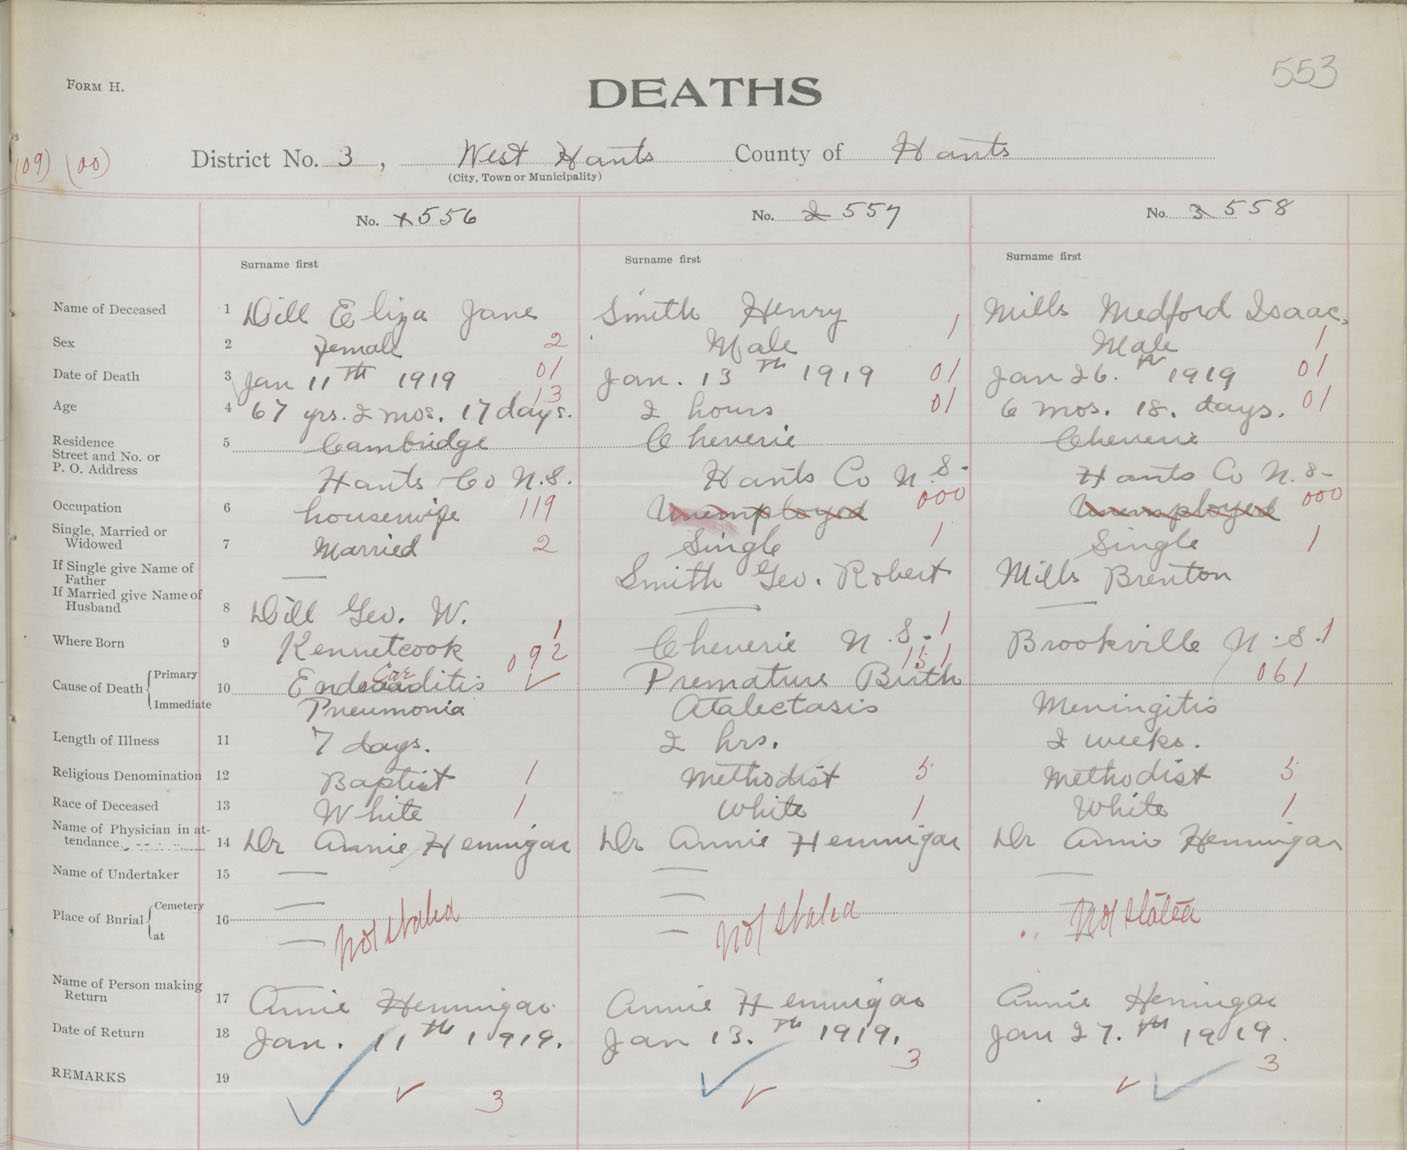 553
FORM H.
DEATHS
(09) (00)
District No. 3, West Hants County of Hants
(City, Town or Municipality)
No. 1 556 No. 2 557 No. 3 558
Surname first Surname first Surname first
Name of Deceased 1 Dill Eliza Jane Smith Henry Mills Medford Isaac,
Sex 2 Female 2 Male 1 Male 1
Date of Death 3 Jan 11th 1919 01 Jan. 13th 1919 01 Jan 26.th 1919 01
Age 4 67 yrs. 2 mos. 17 days. 13 2 hours 01 6 mos. 18. days. 01
Residence 5 Cambridge Cheverie Cheverie
Street and No. or
P. O. Address Hants Co N.S. Hants Co N.S. Hants Co N.S.
Occupation 6 housewife 119 Unemployed 000 Unemployed 000
Single, Married or
Widowed 7 Married 2 Single 1 Single 1
If Single give Name of
Father — Smith Geo. Robert Mills Brenton
If Married give Name of
Husband 8 Dill Geo. W. — —
Where Born 9 Kennetcook 1 Cheverie N.S. 1 Brookville N.S. 1
Cause of Death Primary 10 Endocarditis 092 Premature Birth 151 061
Immediate Pneumonia Atalectasis Meningitis
Length of Illness 11 7 days. 2 hrs. 2 weeks.
Religious Denomination 12 Baptist 1 Methodist 5 Methodist 5
Race of Deceased 13 White 1 White 1 White 1
Name of Physician in at-
tendance 14 Dr Annie Hennigar Dr Annie Hennigar Dr Annie Hennigar
Name of Undertaker 15 — — —
Place of Burial Cemetery 16 — —
at — Not stated — Not stated Not stated
Name of Person making
Return 17 Annie Hennigar. Annie Hennigar Annie Hennigar
Date of Return 18 Jan. 11th 1919. Jan 13.th 1919. Jan 27.th 1919.
REMARKS 19 3 3 3